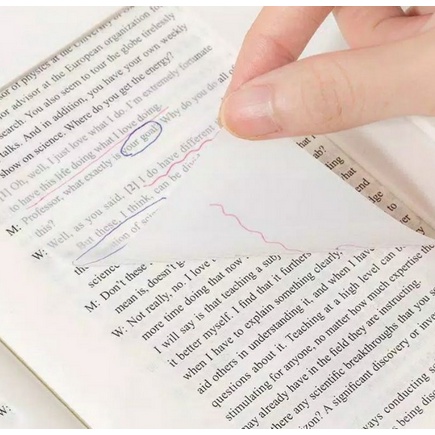 of physics at the University of
or advisor at the European organization for
search. You also seem to tour the globe tirelessly
talks. And in addition, you have your own weekly
show on science. Where do you get the energy?
[1] Oh, well, I just love what I do. I'm extremely fortunate
to have this life doing what I love doing.
M: Professor, what exactly is your goal? Why do you do all of
this?
W: Well, as you said, [2] I do have different
But these, I think, can be
science
M: Don't these
mean is, doesn't
W: Not really, no. I love
more time doing that now
I will say is that teaching a sub
it better myself. I find that it further
when I have to explain something clearly,
aid others in understanding it, and when I have
questions about it. Teaching at a high level can b
stimulating for anyone, no matter how much expertise the
may already have in the field they are instructing.
there any scientific breakthroughs that you s
izon? A significant discovery or inve
ways conducting sc
s being disc
W: